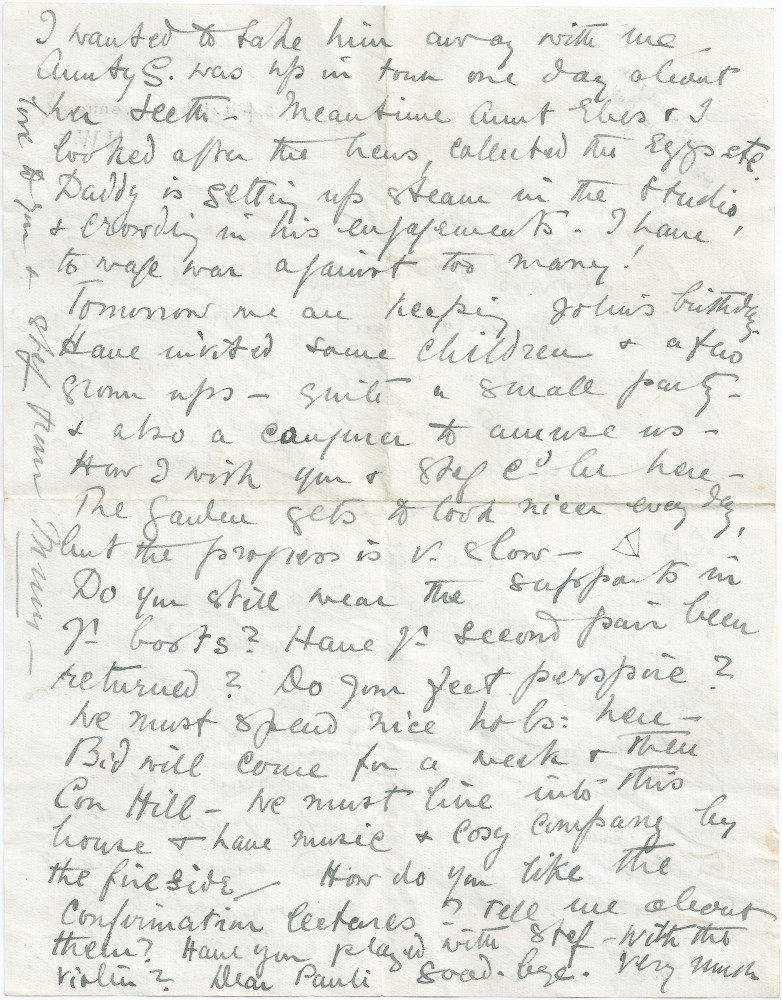 I wanted to take him away with me
Aunty G. was up in town one day about
her teeth - Meantime Aunt Ebes & I
looked after the hens, collected the Eggs etc.
Daddy is getting up steam in the Studio,
& crowding in his engagements - I have
to wage war against too many!
Tomorrow we are keeping John's birthday
Have invited some children & a few
grown ups - quite a small party -
& also a conjurer to amuse us -
How I wish you & Stef cd be here -
The Garden gets to look nicer every day,
but the progress is v. slow -
Do you still wear the supports in
yr boots? Have yr second pair been
returned? Do your feet perspire?
We must spend nice hols: here -
Bid will come for a week & then
Con Hill - We must live into this
house & have music & cosy company by
the fireside - How do you like the
Confirmation lectures? Tell me about
them? Have you played with Stef - with the
violin? Dear Pauli Good-bye. Very much
love to you & Stef from Mumm -